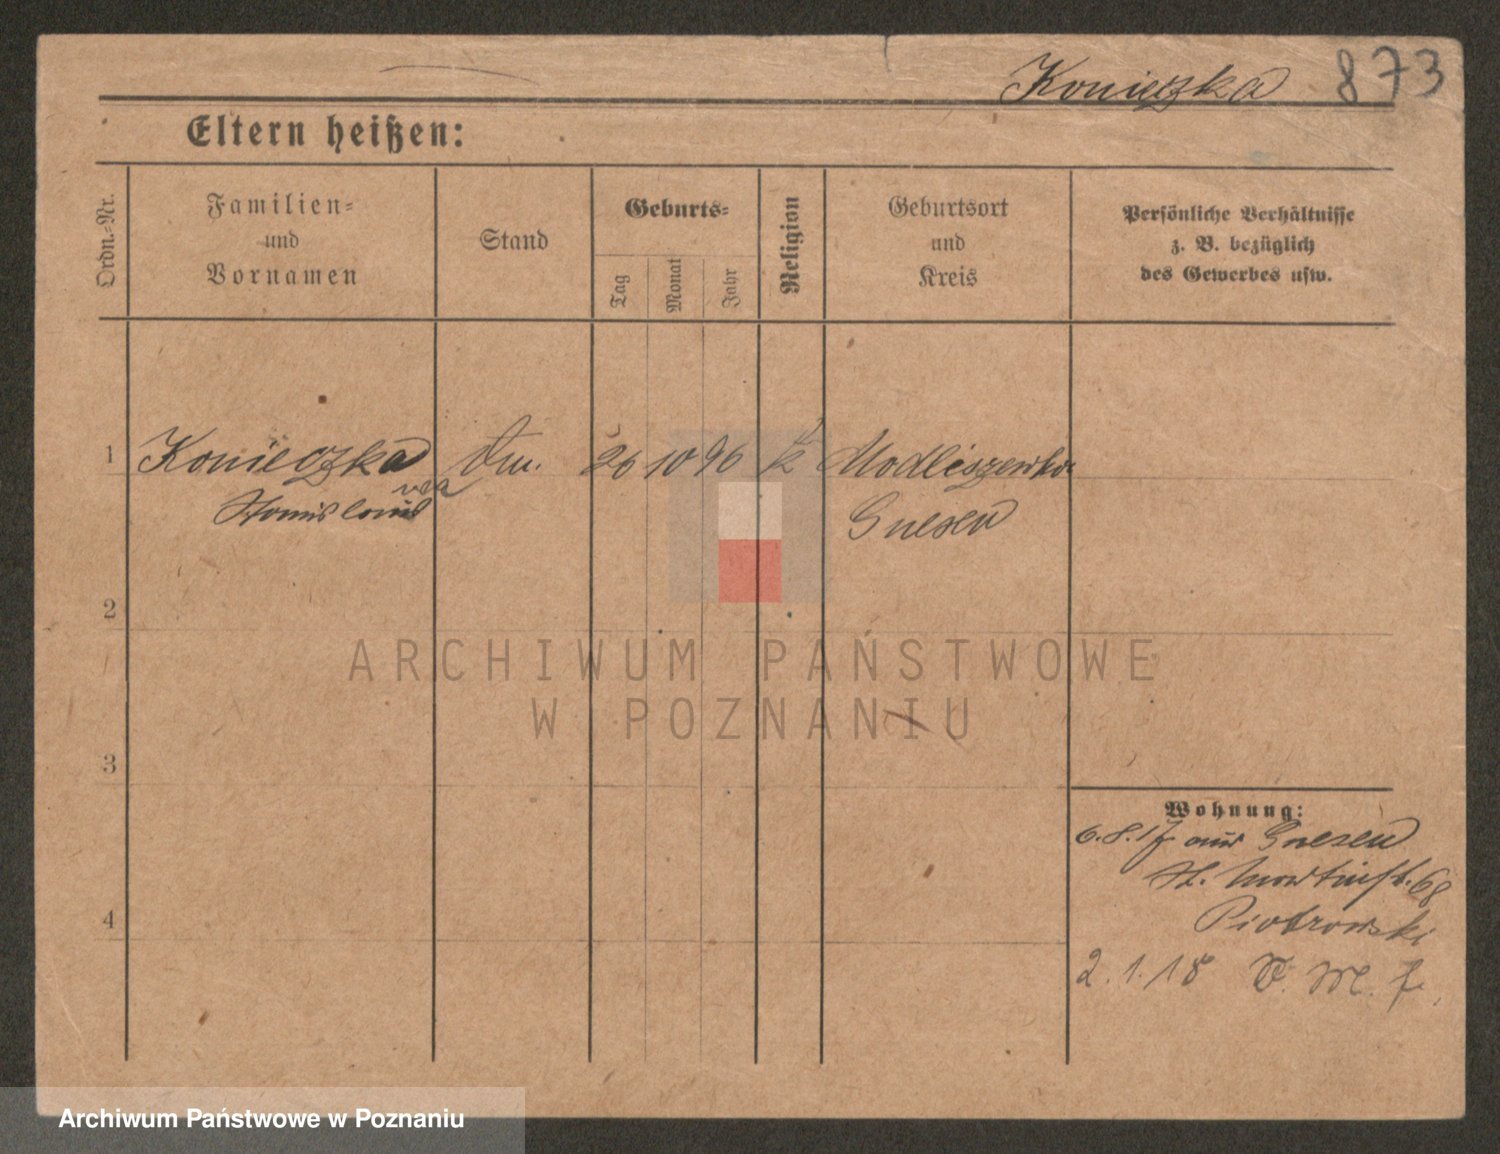 Konieczka 873
Eltern heißen:
Ordn.-Nr.
Familien-
und
Vornamen
Stand
Geburts-
Tag
Monat
Jahr
Religion
Geburtsort
und
Kreis
Persönliche Verhältnisse
z. B. bezüglich
des Gewerbes usw.
1 Konieczka 26 10 96 k Modliszewko
Stanislawa
Gnesen
2
3
4
Wohnung:
6.8.17 aus Gnesen
St. Martinstr. 68
Piotrowski
2.1.18 V. M. f.
ARCHIWUM PAŃSTWOWE
W POZNANIU
Archiwum Państwowe w Poznaniu